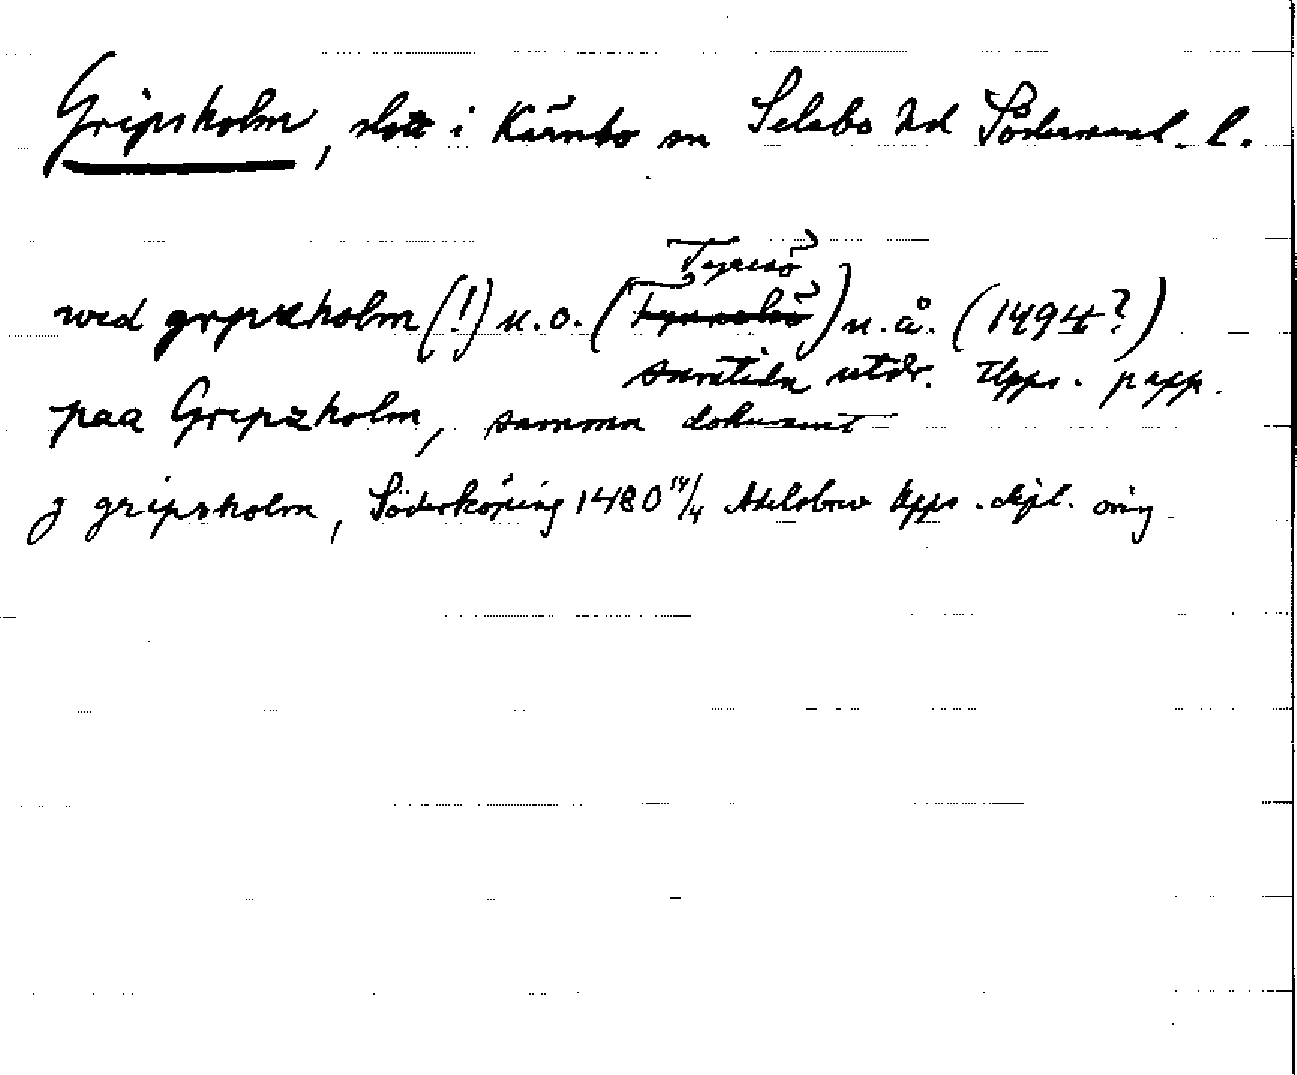 Gripsholm, slott i Kärnbo sn Selebo hd Södermanl. l.
Tyresö
wed grpxzholm (!) u.o. (Tynnelsö) u.å. (1494?)
samtida utdr. Upps. papp.
paa Gripzholm, samma dokument
j gripsholm, Söderköping 1480 14/4 Adelsbrev Upps. dipl. orig